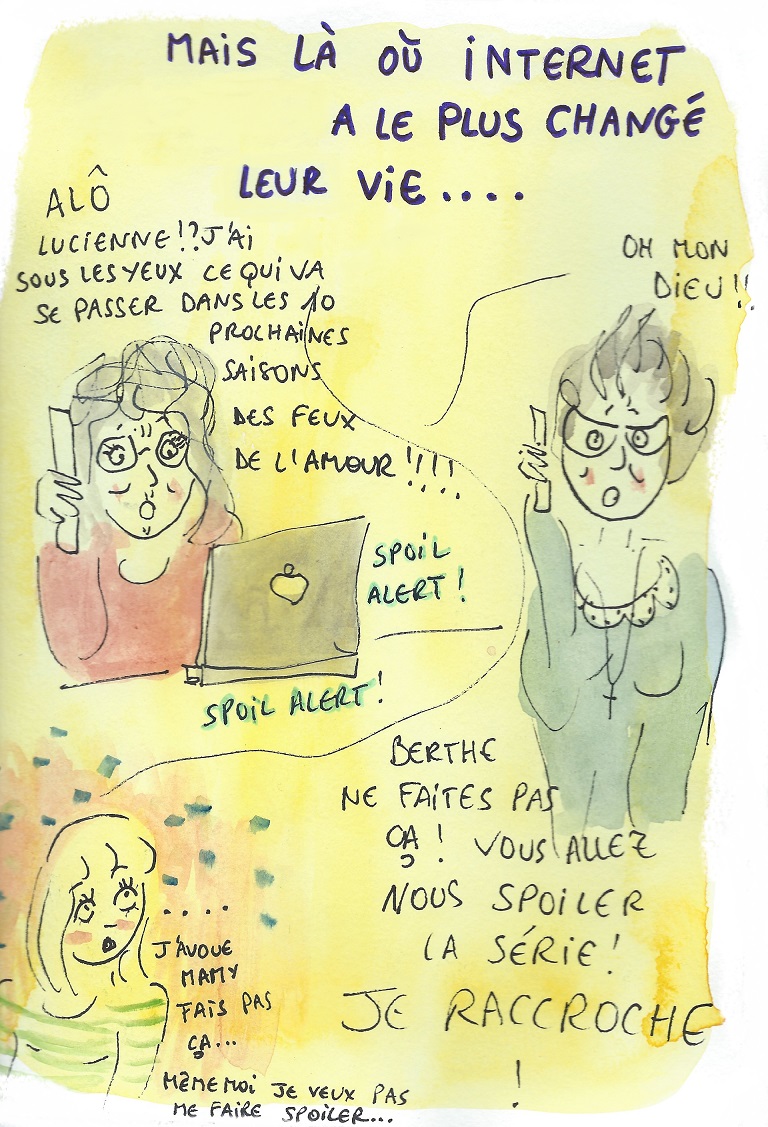 MAIS LÀ OÙ INTERNET
A LE PLUS CHANGÉ
LEUR VIE....
ALÔ
LUCIENNE!? J'AI
SOUS LES YEUX CE QUI VA
SE PASSER DANS LES 10
PROCHAINES
SAISONS
DES FEUX
DE L'AMOUR!!!!
OH MON
DIEU!!
SPOIL
ALERT!
SPOIL ALERT!
BERTHE
NE FAITES PAS
ÇA! VOUS ALLEZ
NOUS SPOILER
LA SÉRIE!
JE RACCROCHE
!
....
J'AVOUE
MAMY
FAIS PAS
ÇA...
MÊME MOI JE VEUX PAS
ME FAIRE SPOILER...